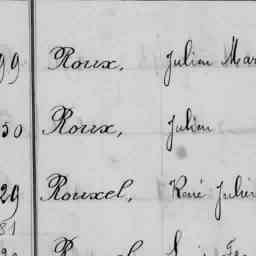 99 Roux, Julien Mar
50 Roux, Julien
29 Rouxel, René Julien
81